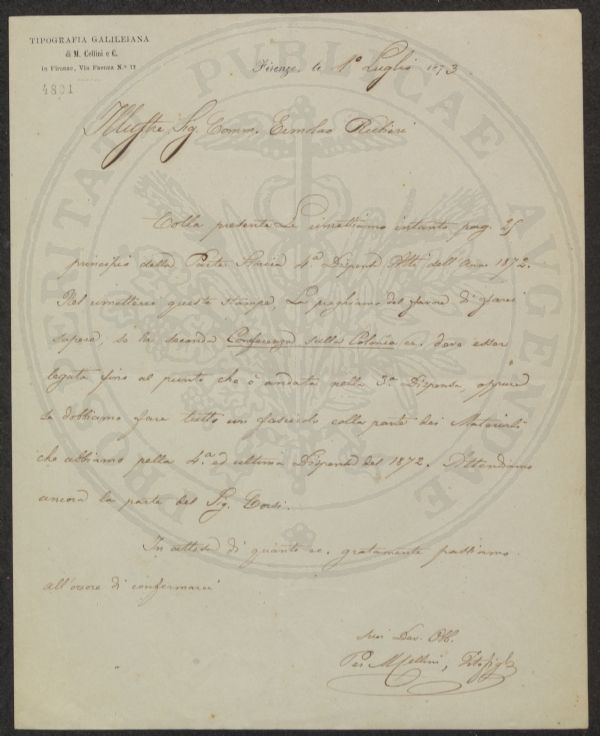 TIPOGRAFIA GALILEIANA
di M. Cellini e C.
in Firenze, Via Faenza N.º 72
4801
Firenze, le 1º Luglio 1873
Illustre Sig. Comm. Ermolao Rubieri
Colla presente Le rimettiamo intanto pag. 25
principio della Parte Storica 4ª Dispensa Atti dell'Anno 1872.
Nel rimetterle queste stampe, La preghiamo del favore di farci
sapere, se la seconda Conferenza sulla Colonìa ec. deve esser
legata fino al punto che è andata nella 3ª Dispensa, oppure
se dobbiamo fare tutto un fascicolo colla parte dei Materiali
che abbiamo nella 4.ª ed ultima Dispensa del 1872. Attendiamo
ancora la parte del Sig. Corsi.
In attesa di quanto ec. gratamente passiamo
all'onore di confermarci
suoi Dev. Obb.
Per M. Cellini,
PUBLICAE
AUGENDAE
PROSPERITATI